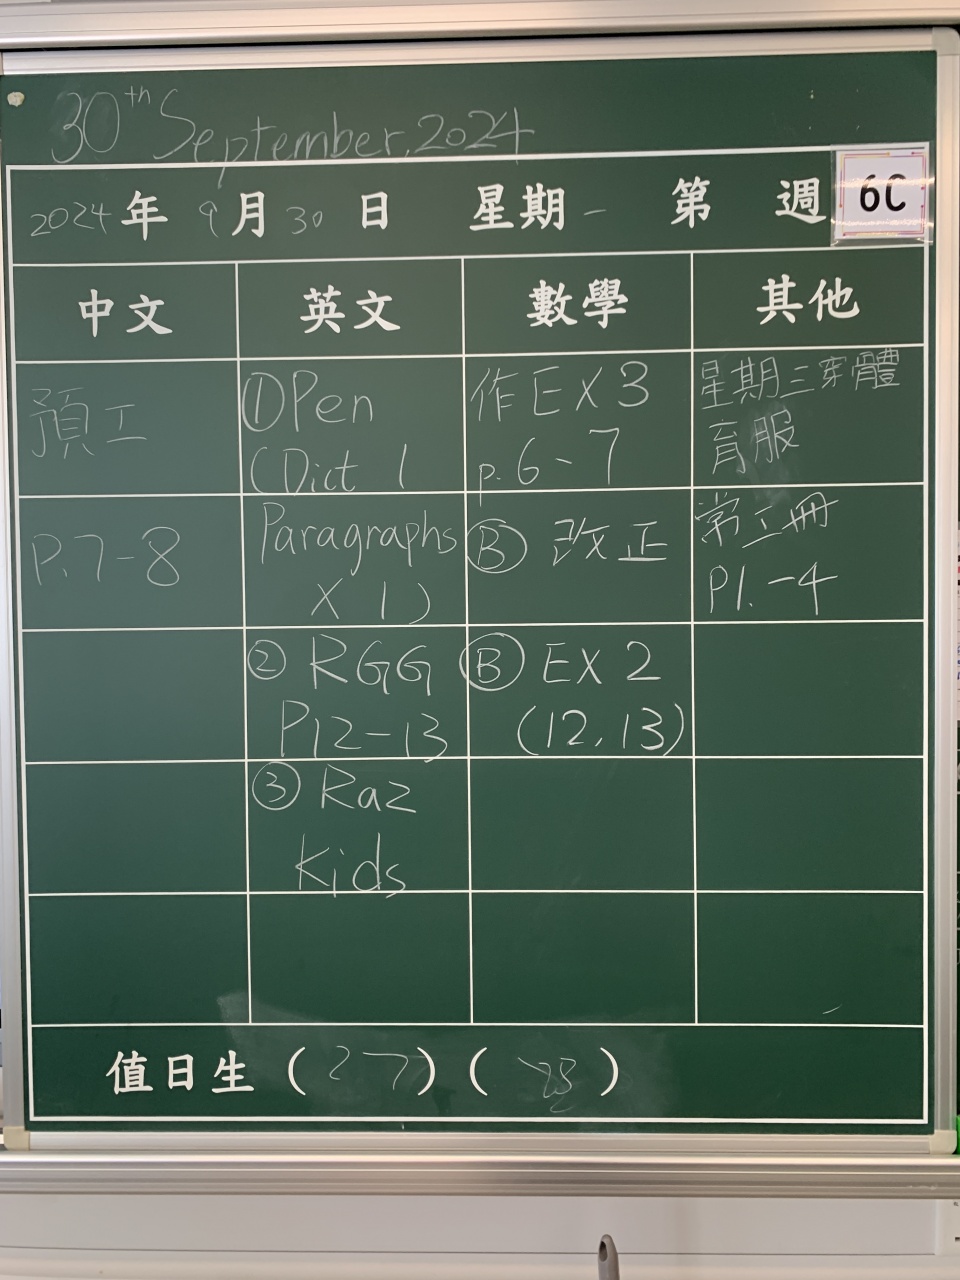 30th September, 2024
2024年 9月30日 星期一 第 週 6C
中文 英文 數學 其他
預工
P.7-8
①Pen
(Dict 1
Paragraphs
X 1)
② RGG
P12-13
③ Raz
Kids
作EX3
p.6-7
Ⓑ 改正
Ⓑ EX2
(12,13)
星期三穿體
育服
常工冊
P1.-4
值日生 (27) (28)